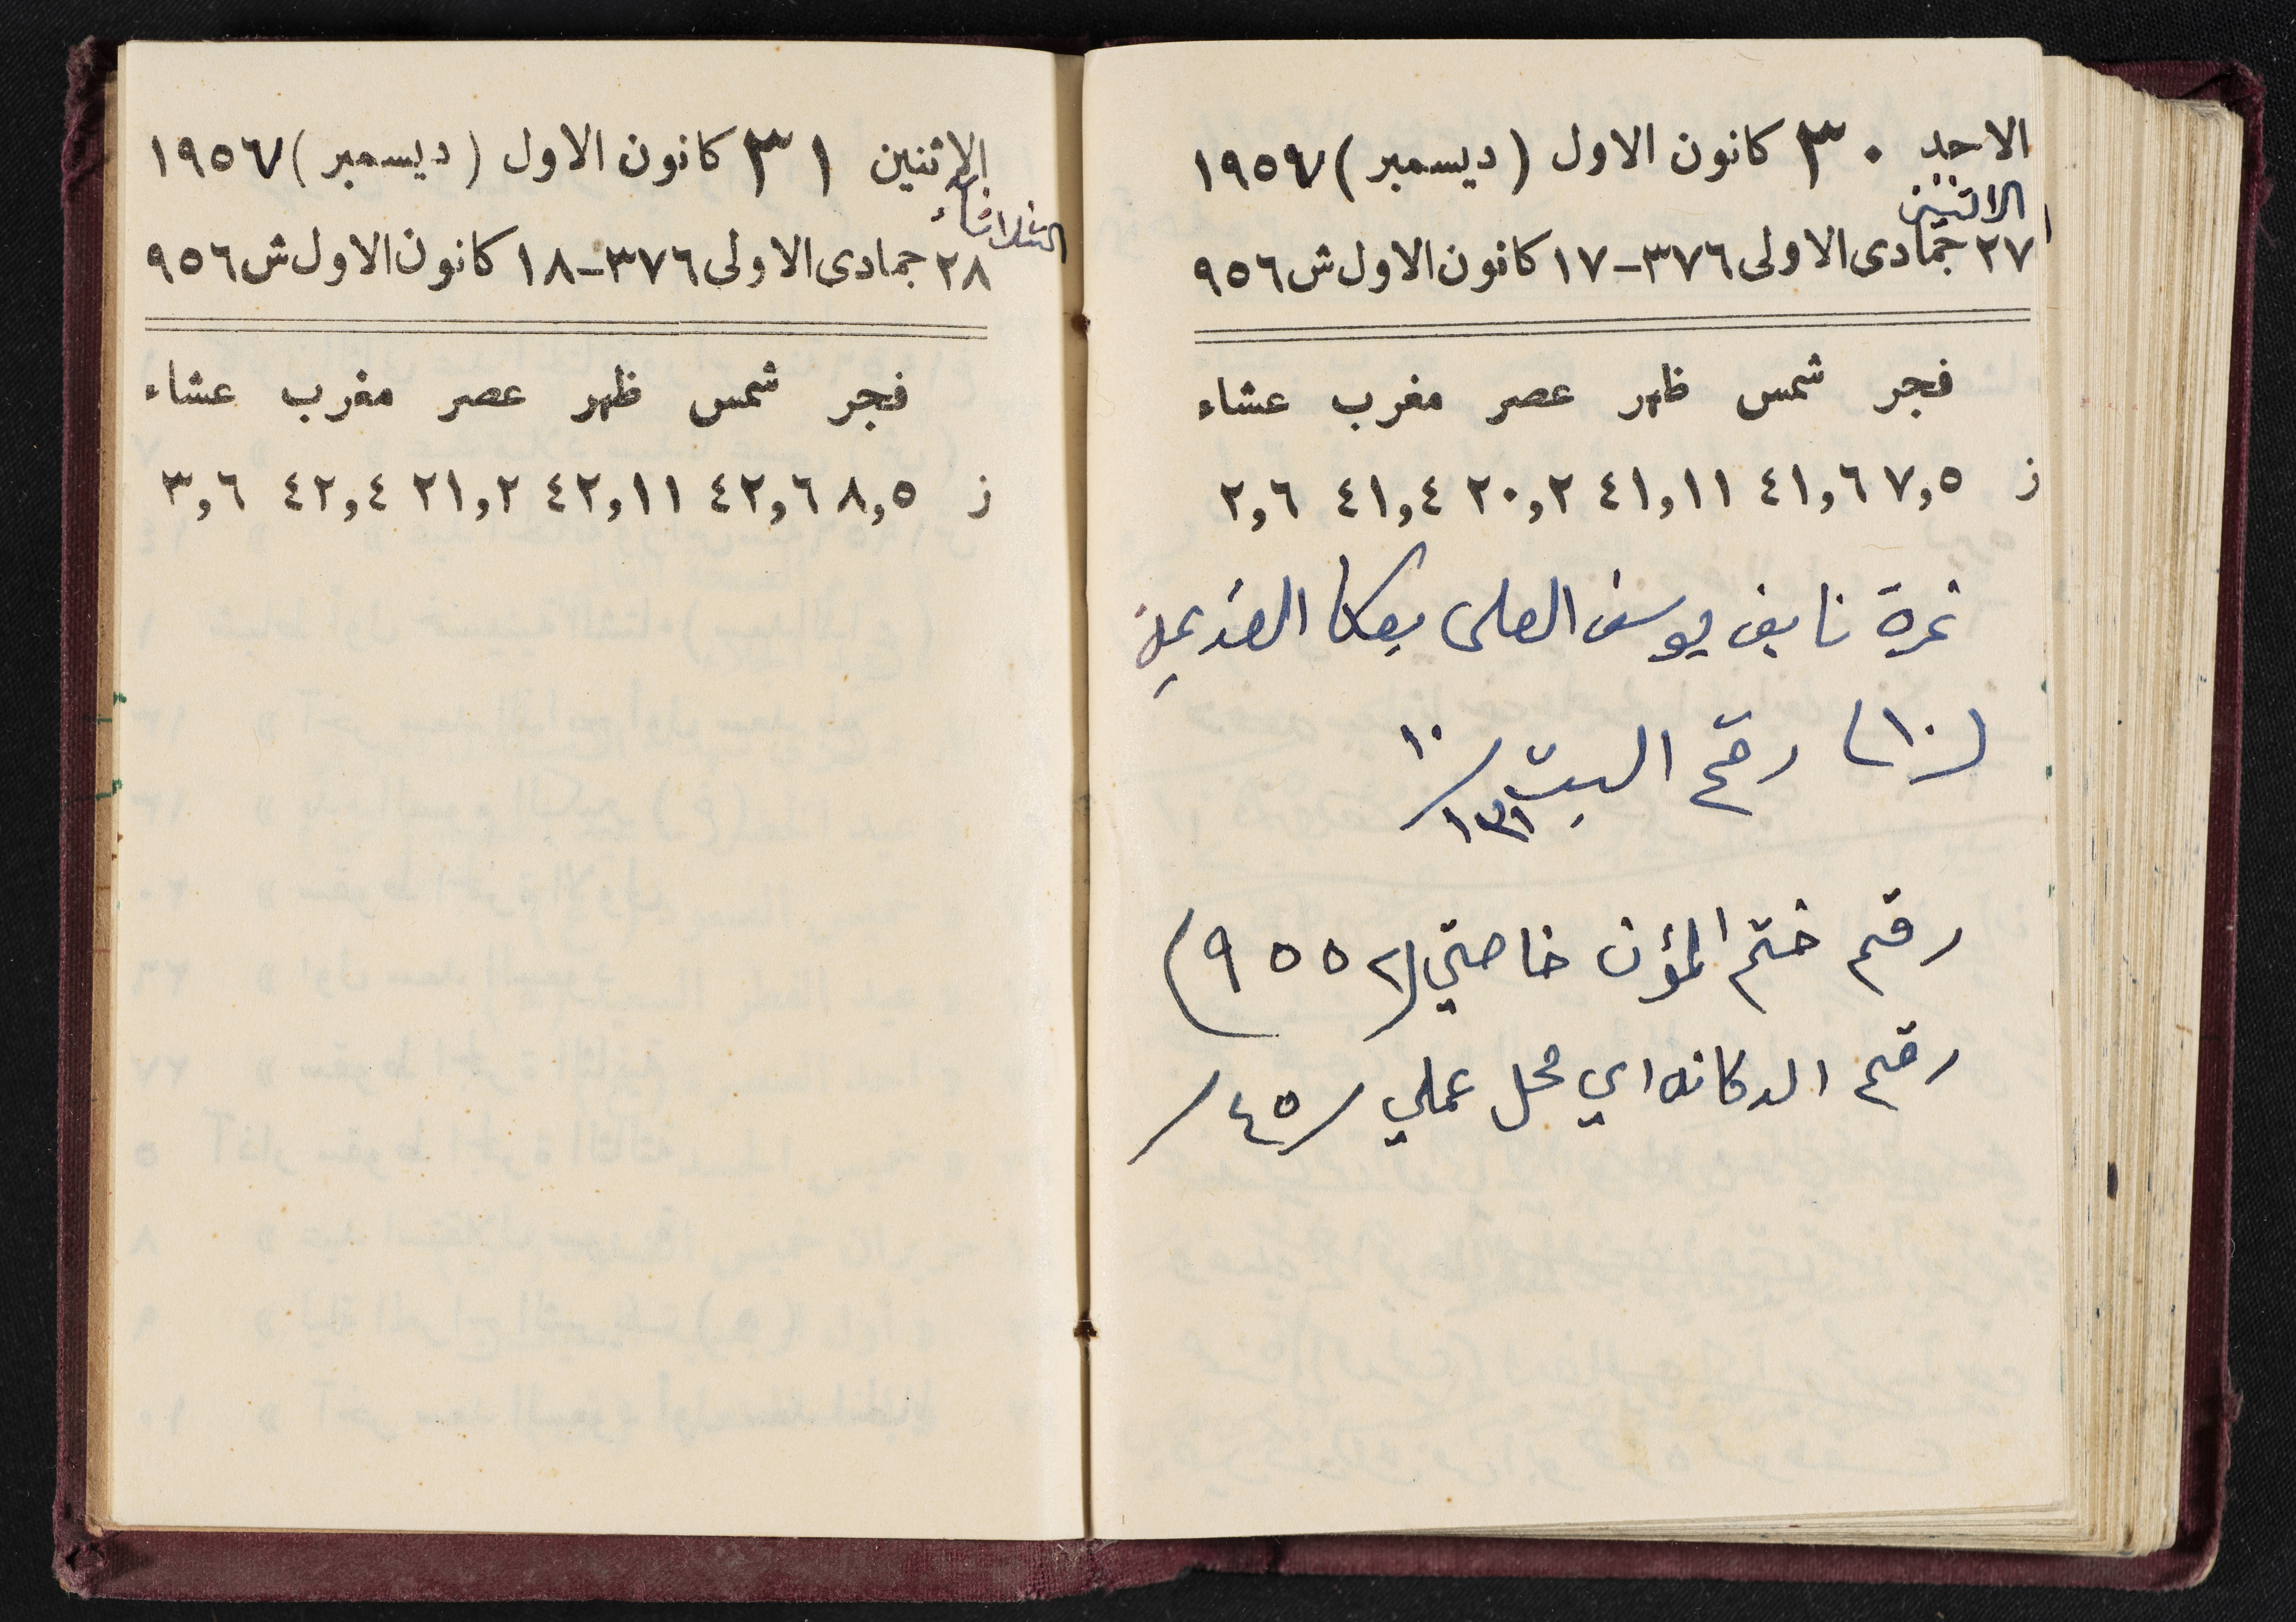 الاحد ٣٠ كانون الاول (ديسمبر) ١٩٥٧
الاثنين
٢٧ جمادى الاولى ٣٧٦-١٧ كانون الاول ش ٩٥٦
فجر شمس ظهر عصر مغرب عشاء
ز ٧,٥ ٤١,٦ ٤١,١١ ٢٠,٢ ٤١,٤ ٢,٦
نمرة نايف يوسف العلي بعكا القديمة
(١٠) رقم البيت ١٠/١٣١
رقم ختم المؤن خاصتي (٩٥٥٢)
رقم الدكانه اي محل عملي /٤٥/
الاثنين ٣١ كانون الاول (ديسمبر) ١٩٥٧
الثلاثاء
٢٨ جمادى الاولى ٣٧٦-١٨ كانون الاول ش ٩٥٦
فجر شمس ظهر عصر مغرب عشاء
ز ٨,٥ ٤٢,٦ ٤٢,١١ ٢١,٢ ٤٢,٤ ٣,٦